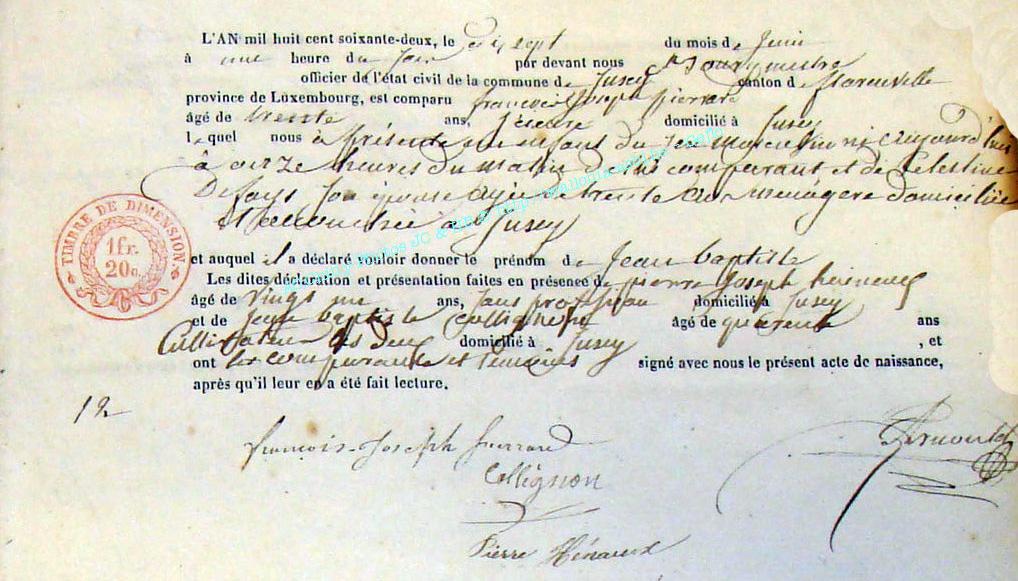 L'AN mil huit cent soixante-deux, le dix sept du mois de Juin
à une heure du soir par devant nous Bourgmestre
officier de l'état civil de la commune de Jusey canton de
province de Luxembourg, est comparu françois Joseph pierrard
âgé de trente ans, domicilié à Jusey
lequel nous à présenté un enfant du sexe masculin né aujourd'hui
à onze heures du matin comparant et de Celestine
Defays son épouse agée de trente ans menagère domiciliée
à Jusey
et auquel il a déclaré vouloir donner le prénom de Jean baptiste
Les dites déclaration et présentation faites en présence de pierre Joseph
âgé de vingt un ans, sans profession domicilié à Jusey
et de Jean baptiste Collignon âgé de quarante ans
Cultivateur les deux domicilié à Jusey, et
ont les comparants et temoins signé avec nous le présent acte de naissance,
après qu'il leur en a été fait lecture.
TIMBRE DE DIMENSION.
1 fr.
20 c.
12
françois Joseph pierrard
Collignon
Pierre Hénaux